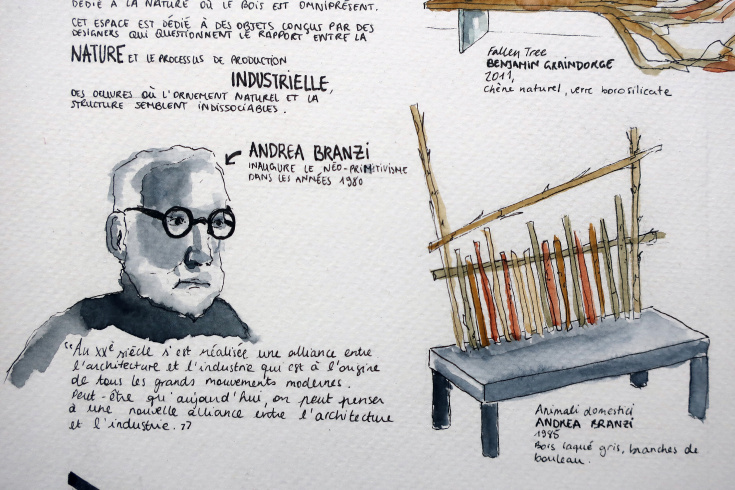 DÉDIÉ À LA NATURE OÙ LE BOIS EST OMNIPRÉSENT.
CET ESPACE EST DÉDIÉ À DES OBJETS CONÇUS PAR DES
DESIGNERS QUI QUESTIONNENT LE RAPPORT ENTRE LA
NATURE ET LE PROCESSUS DE PRODUCTION
INDUSTRIELLE,
DES OEUVRES OÙ L'ORNEMENT NATUREL ET LA
STRUCTURE SEMBLENT INDISSOCIABLES.
Fallen Tree
BENJAMIN GRAINDORGE
2011,
Chêne naturel, verre borosilicate
ANDREA BRANZI
INAUGURE LE NÉO-PRIMITIVISME
DANS LES ANNÉES 1980
"Au XXe siècle s'est réalisée une alliance entre
l'architecture et l'industrie qui est à l'origine
de tous les grands mouvements modernes.
Peut-être qu'aujourd'hui, on peut penser
à une nouvelle alliance entre l'architecture
et l'industrie."
Animali domestici
ANDREA BRANZI
1985
Bois laqué gris, branches de
bouleau.